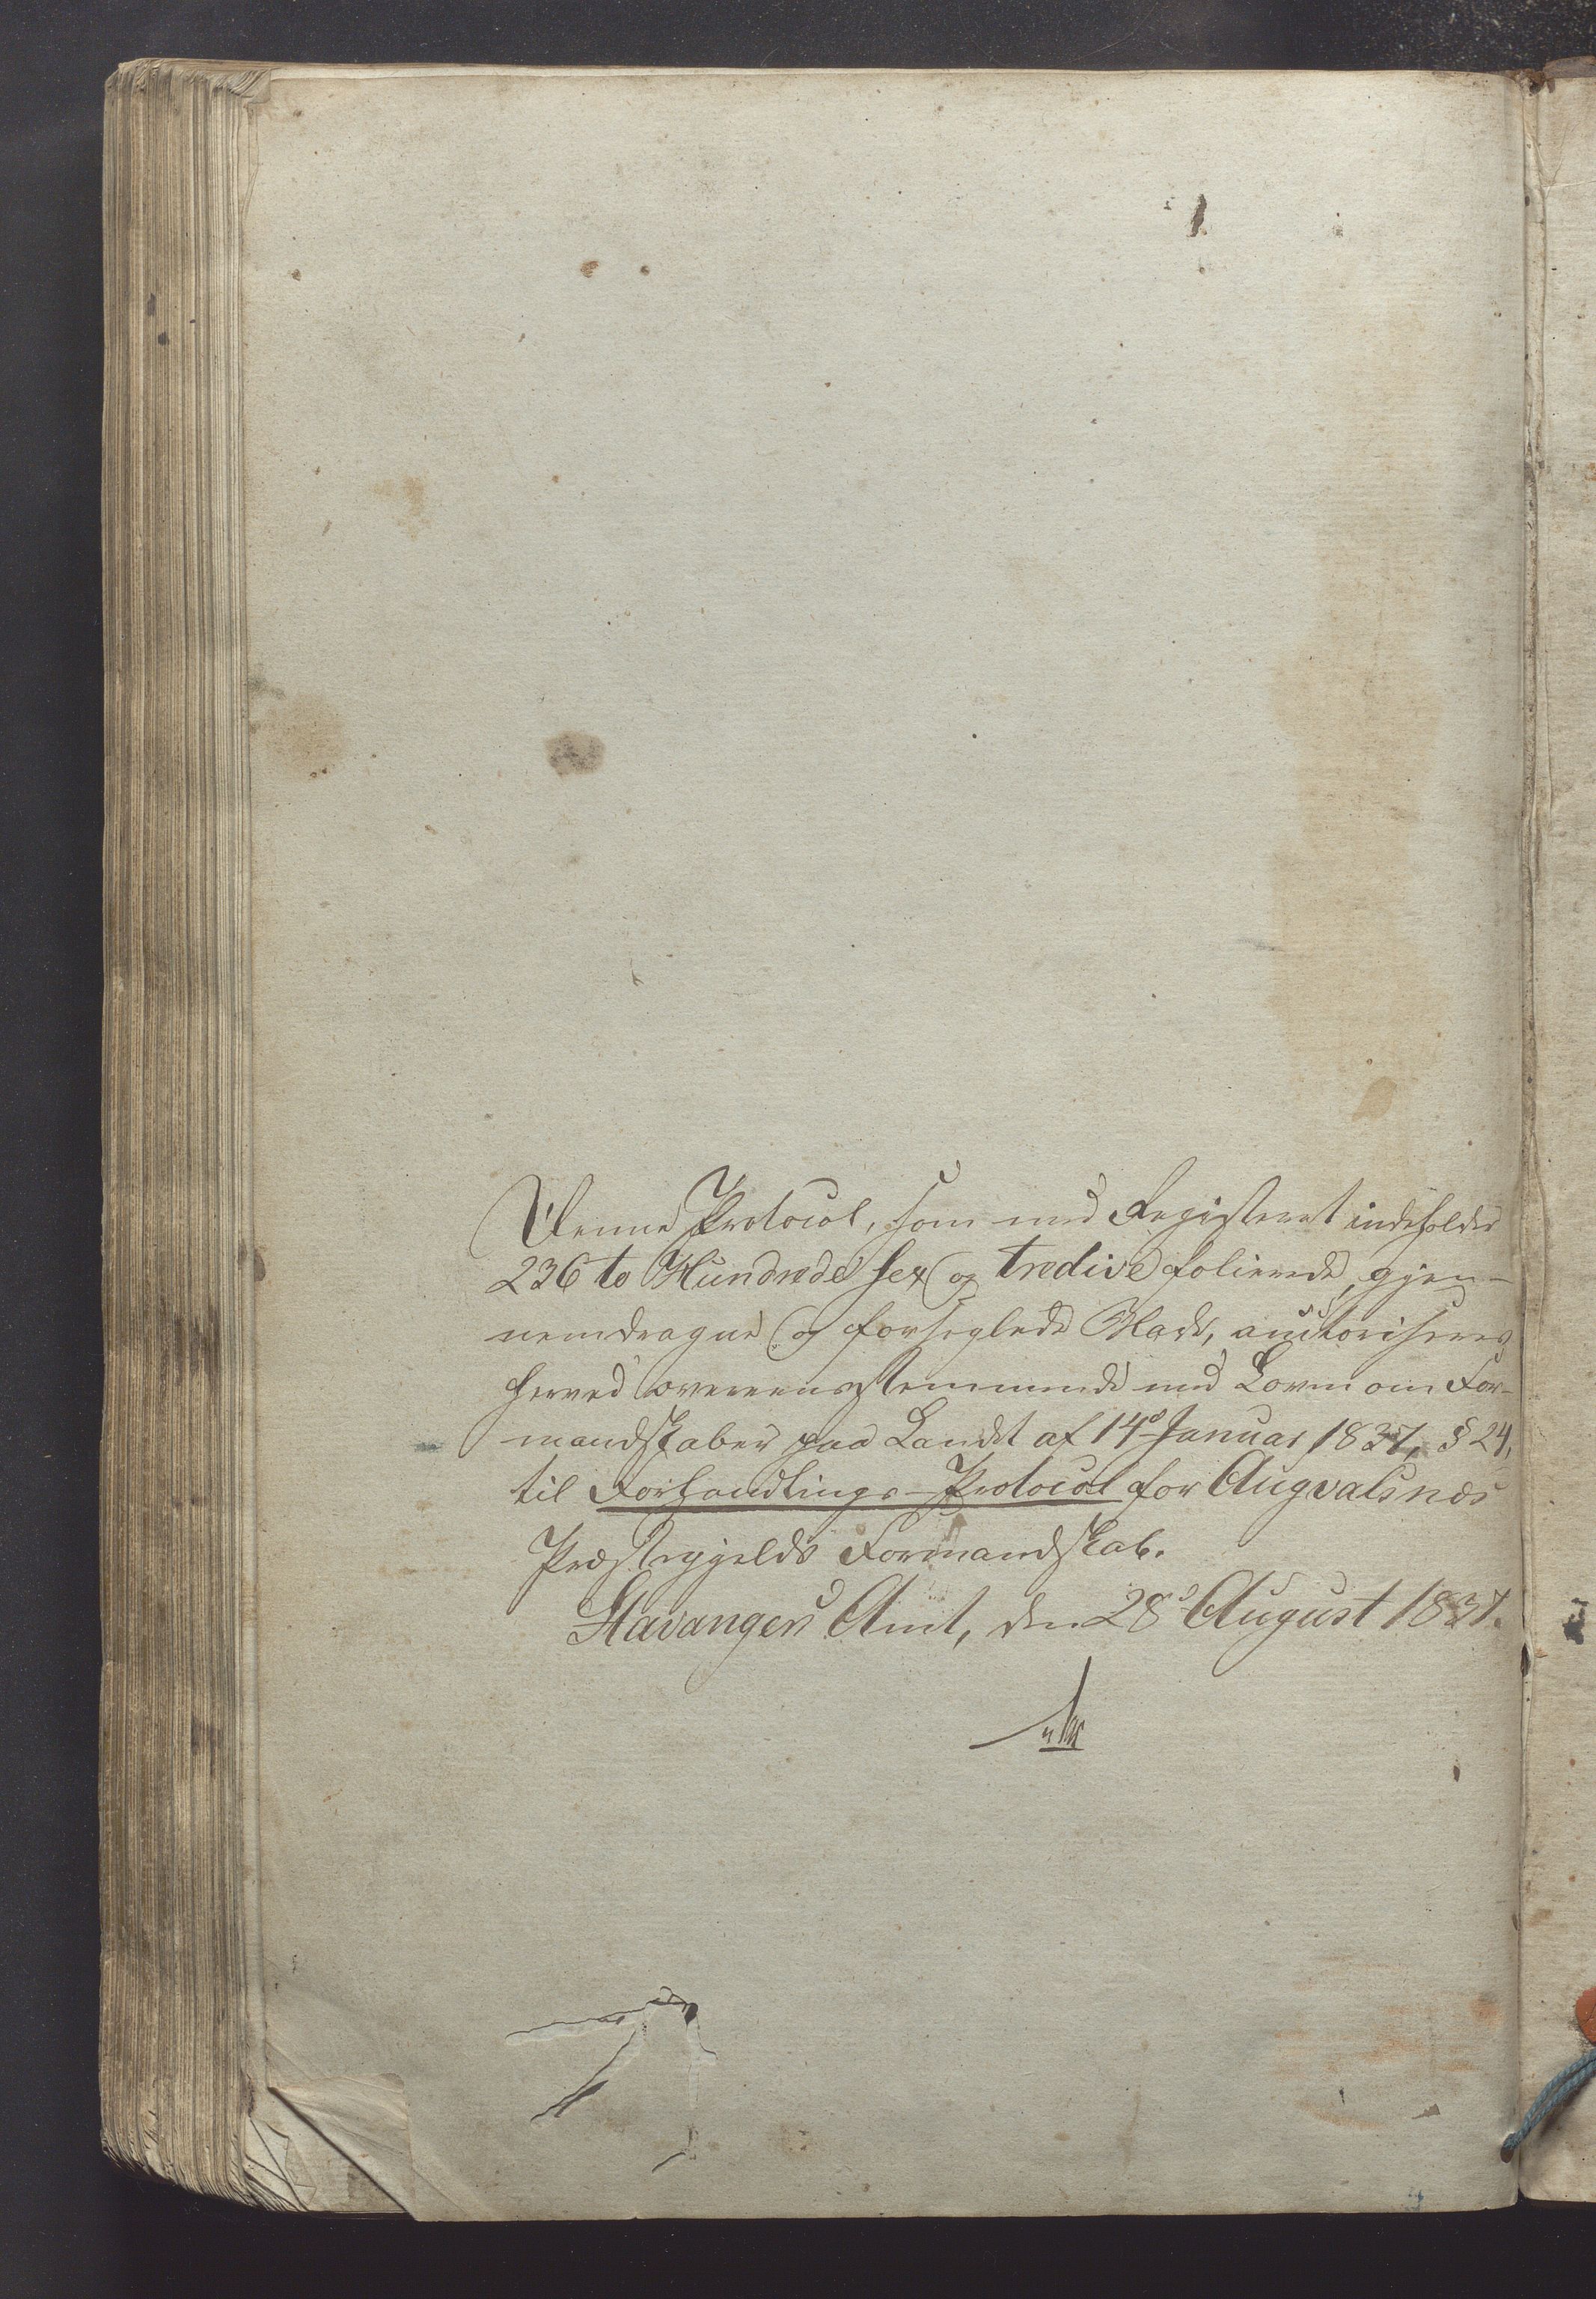 Denne Protocol, som med Registeret indeholder
236 to Hundrede sex og tredive folierede, gjen-
nemdragne og forseglede Blade, auctoriseres
herved overeensstemmende med Loven om For-
mandskaber paa Landet af 14de Januar 1837, § 24,
til Forhandlings-Protocol for Augvalsnæs
Præstegjelds Formandskab.
Stavanger Amt, den 28de August 1837.